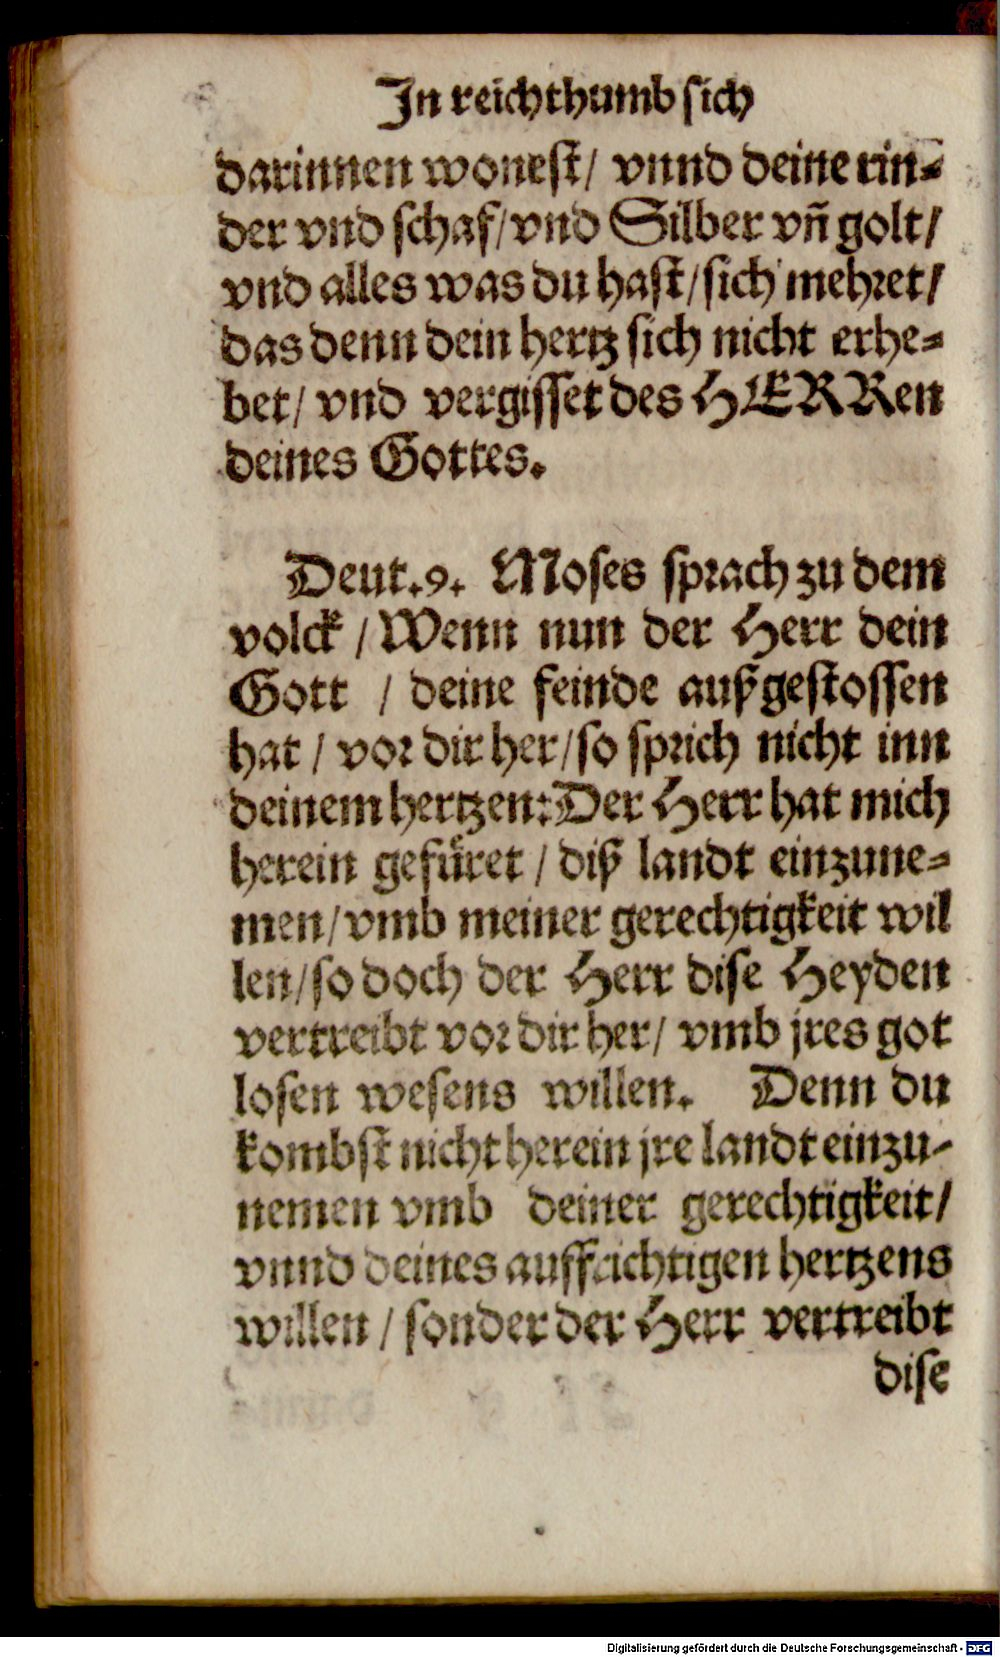 In reichthumb sich
darinnen wonest/ vnnd deine rin⸗
der vnd schaf/ vnd Silber vñ golt/
vnd alles was du hast/ sich mehret/
das denn dein hertz sich nicht erhe⸗
bet/ vnd vergisset des HERRen
deines Gottes.
Deut.9. Moses sprach zu dem
volck / Wenn nun der Herr dein
Gott / deine feinde außgestossen
hat / vor dir her/ so sprich nicht inn
deinem hertzen: Der Herr hat mich
herein gefüret / diß landt einzune⸗
men/ vmb meiner gerechtigkeit wil
len/ so doch der Herr dise Heyden
vertreibt vor dir her/ vmb jres got
losen wesens willen. Denn du
kombst nicht herein jre landt einzu-
nemen vmb deiner gerechtigkeit/
vnnd deines auffrichtigen hertzens
willen / sonder der Herr vertreibt
dise
Digitalisierung gefördert durch die Deutsche Forschungsgemeinschaft - DFG